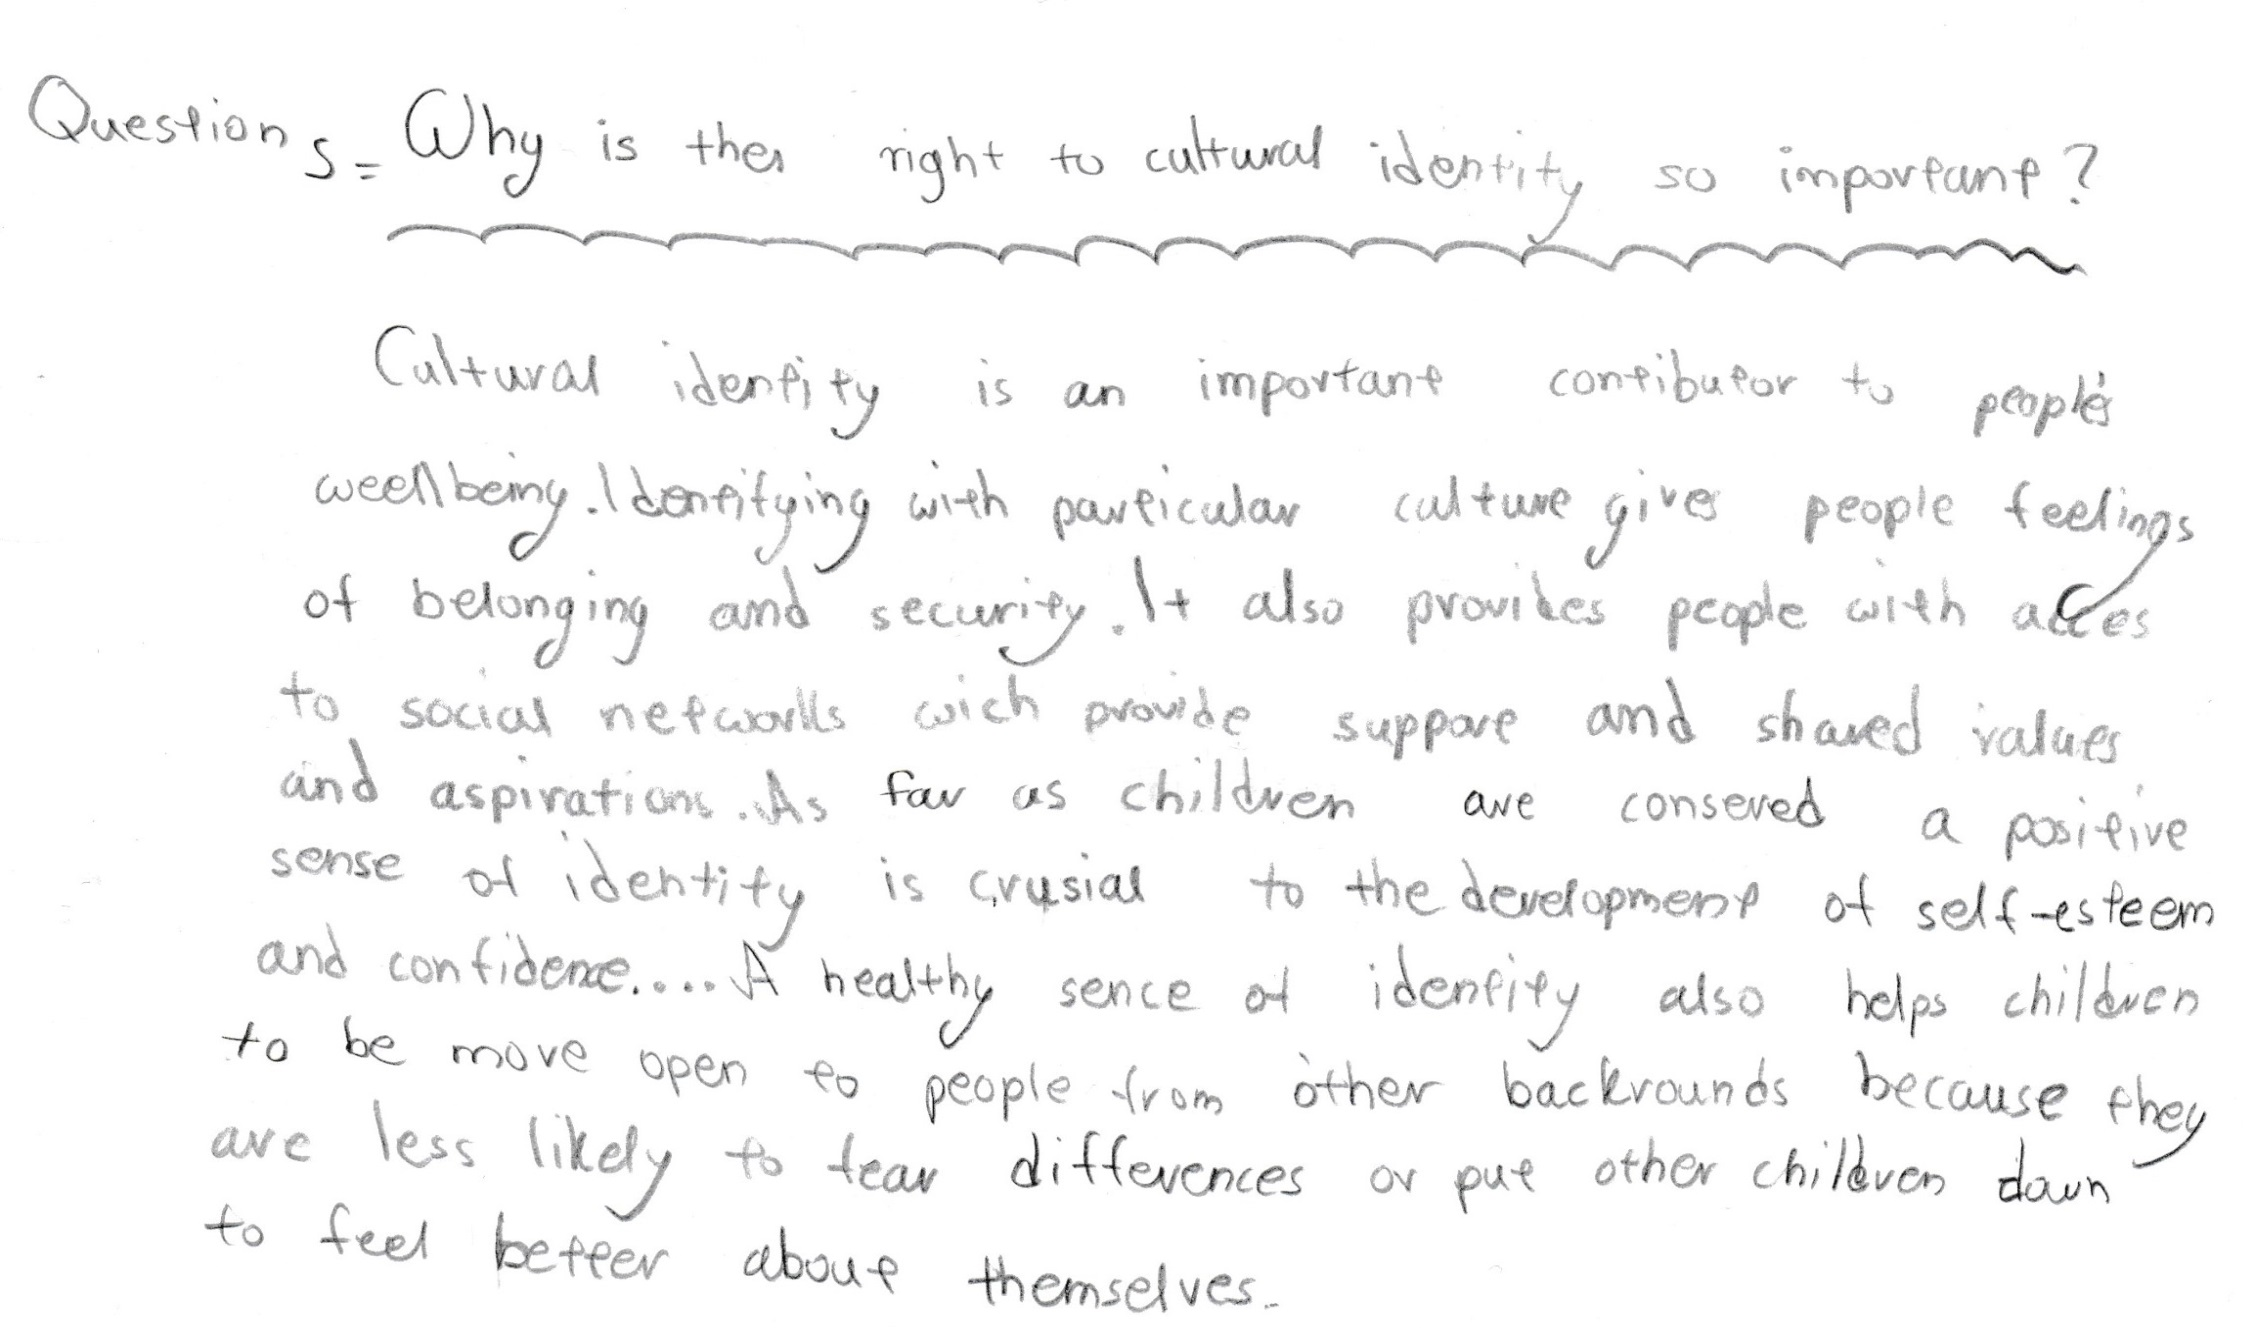 Questions = Why is the right to cultural identity so important?
Cultural identity is an important contibutor to people's
weellbeing. Identifying with particular culture gives people feelings
of belonging and security. It also provides people with acces
to social networks wich provide support and shared values
and aspirations. As far as children are conserved a positive
sense of identity is crusial to the development of self-esteem
and confidence.... A healthy sence of identity also helps children
to be more open to people from other backrounds because they
are less likely to fear differences or put other children down
to feel better about themselves.